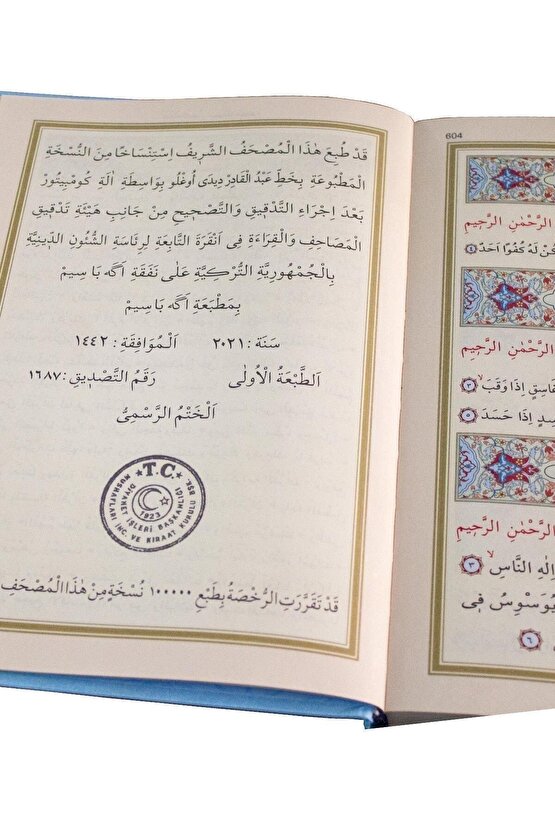 قَدْ طُبِعَ هٰذَا الْمُصْحَفُ الشَّرِيفُ اِسْتِنْسَاخًا مِنَ النُّسْخَةِ
الْمَطْبُوعَةِ بِخَطِّ عَبْدُ الْقَادِرْ دِيدَى أُوغْلُو بِوَاسِطَةِ اٰلَةِ كُومْبِيتُورْ
بَعْدَ اِجْرَاءِ التَّدْقِيقِ وَالتَّصْحِيحِ مِنْ جَانِبِ هَيْئَةِ تَدْقِيقِ
الْمَصَاحِفِ وَالْقِرَاءَةِ فِى اَنْقَرَةَ التَّابِعَةِ لِرِئَاسَةِ الشُّئُونِ الدِّينِيَّةِ
بِالْجُمْهُورِيَّةِ التُّرْكِيَّةِ عَلٰى نَفَقَةِ اَگَه بَاسِيمْ
بِمَطْبَعَةِ اَگَه بَاسِيمْ
سَنَة : ٢٠٢١ اَلْمُوَافِقَةِ : ١٤٤٢
اَلطَّبْعَةُ الْاُولٰى رَقَمُ التَّصْدِيقِ : ١٦٨٧
اَلْخَتْمُ الرَّسْمِىُّ
★T.C.★
DİYANET İŞLERİ BAŞKANLIĞI
MUSHAFLARI İNC. VE KIRAAT KURULU BŞK.
1923
قَدْ تَقَرَّرَتِ الرُّخْصَةُ بِطَبْعِ ١٠٠٠٠٠ نُسْخَةٍ مِنْ هٰذَا الْمُصْحَفِ
604
الرَّحْمٰنِ الرَّحِيمِ
لَهُ كُفُوًا اَحَدٌ ٤
الرَّحْمٰنِ الرَّحِيمِ
غَاسِقٍ اِذَا وَقَبَ ٣
اِذَا حَسَدَ ٥
الرَّحْمٰنِ الرَّحِيمِ
اِلٰهِ النَّاسِ ٣
يُوَسْوِسُ فِى
٦